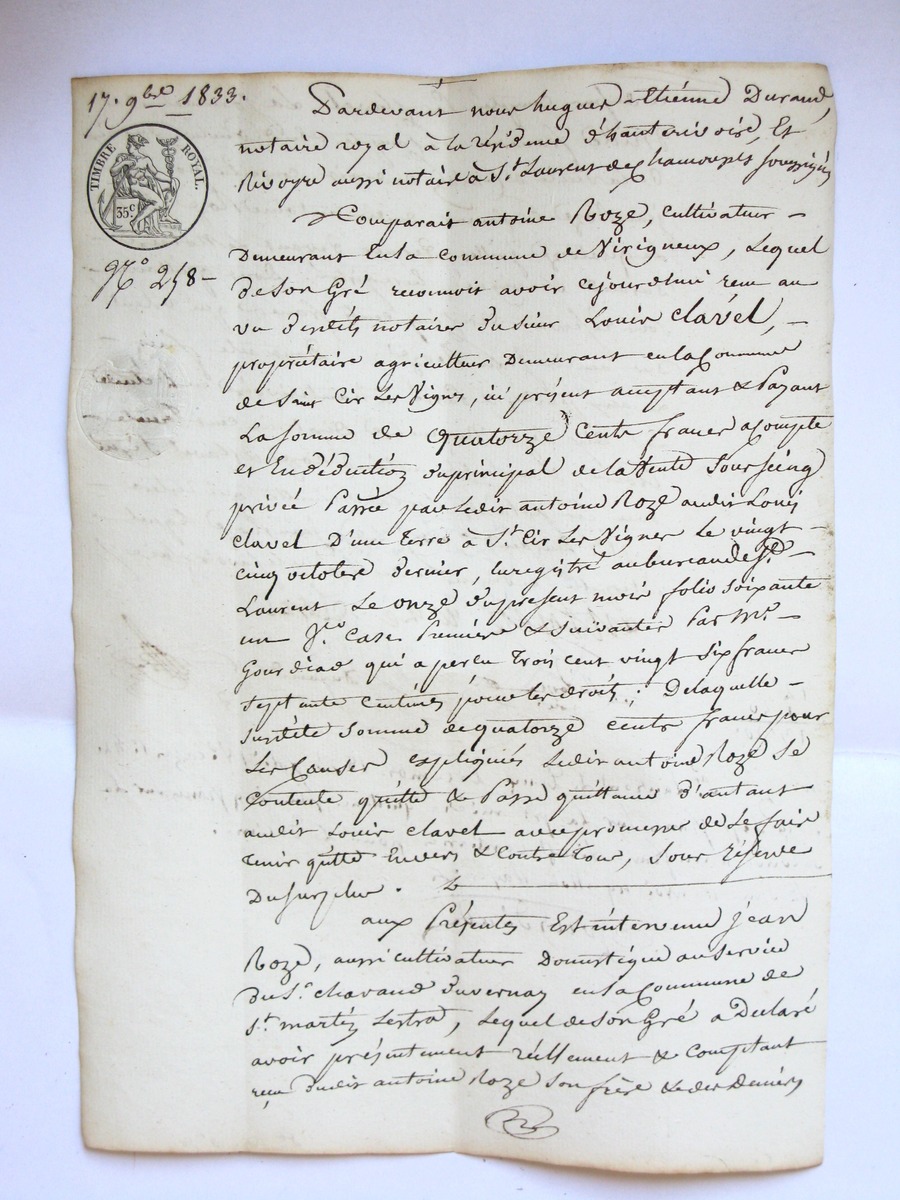 17. 9bre 1833.
TIMBRE ROYAL.
35c
No 258
Pardevant nous hugues-Etiénne Durand,
notaire royal à la résidence d'hauterivoire, Et
Rivoyre aussi notaire à St. Laurent de Chamousset soussignés
Comparait antoine Roze, cultivateur
Demeurant En la commune de Virigneux, Lequel
de Son Gré reconnoit avoir cejourdhui reçu au
vu desdits notaires du sieur Louis Clavel,
propriétaire agriculteur Demeurant en la Commune
de Saint Cir Les Vignes, ici présent acceptant & Payant
La somme de quatorze Cents francs acompte
et En déduction du principal de la Vente Sous seing
privé Passée par Ledit antoine Roze audit Louis
clavel D'une Terre à St. Cir Les Vignes Le vingt
cinq octobre dernier, Enregistré au bureau de St.
Laurent Le onze du present mois folio soixante
un Case Première & suivantes Par Mr.
qui a perçu Trois cent vingt six francs
septante centimes pour les droits; De laquelle
susdite Somme de quatorze cents francs pour
Les Causes expliquées Ledit antoine Roze Se
Contente quitte & Passe quittance d'autant
audit Louis clavel avec promesse de Le faire
Tenir quitte Envers & Contre Tous, Sous réserve
Du surplus.
aux Présentes Est intervenu jean
Roze, aussi cultivateur Domestique au service
du Sr. chavand Duvernay en la Commune de
St. martin Lestra, Lequel de Son Gré a Déclaré
avoir présentement réellement & Comptant
reçu dudit antoine Roze Son frère & de ses Deniers